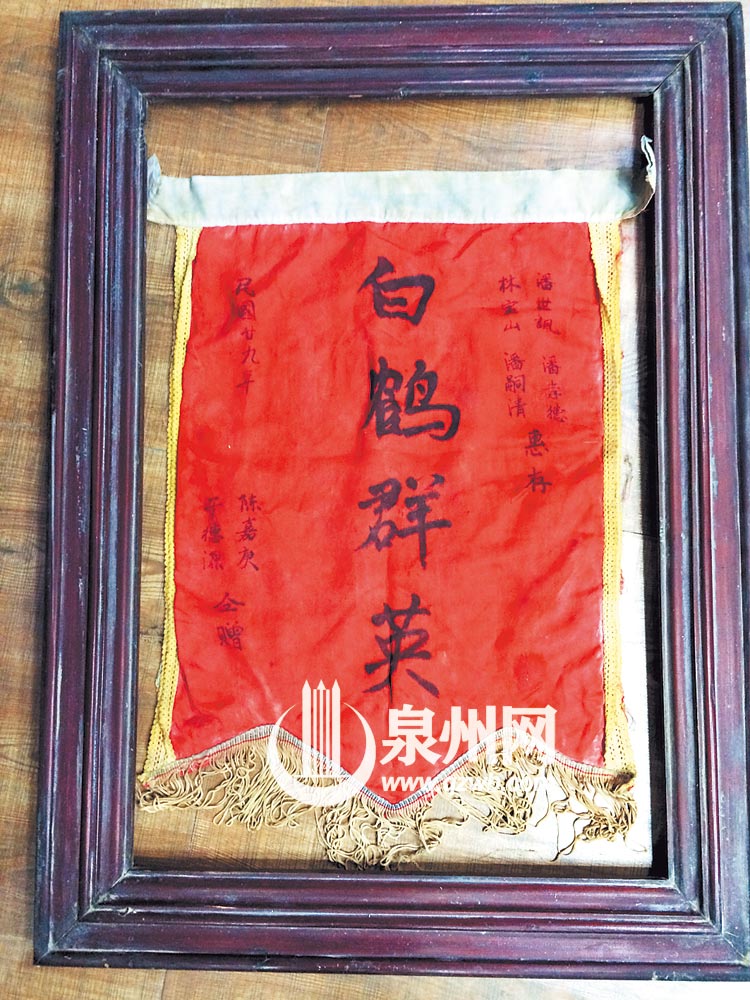 潘世諷 潘崇德
林宝山 潘嗣清 惠存
白鶴群英
民國廿九年
陈嘉庚
德源
仝赠
泉州网